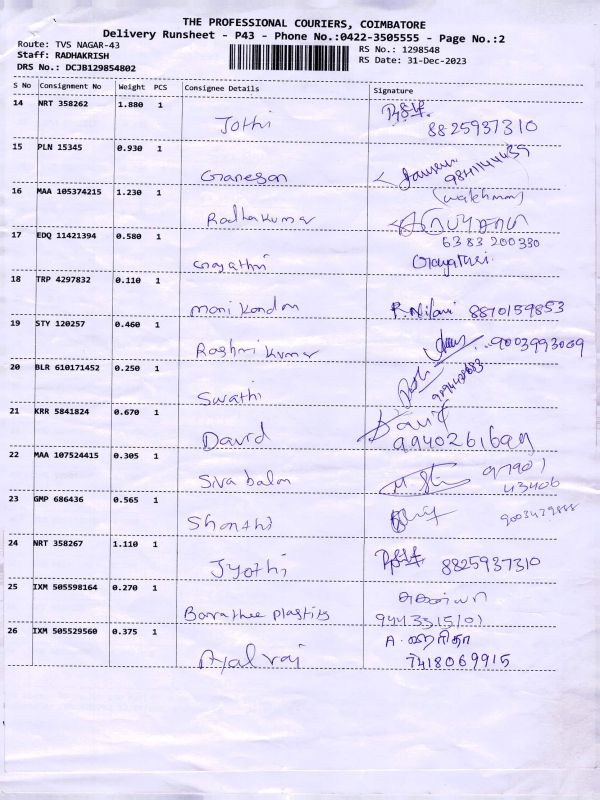 THE PROFESSIONAL COURIERS, COIMBATORE
Delivery Runsheet - P43 - Phone No.:0422-3505555 - Page No.:2
Route: TVS NAGAR-43 RS No.: 1298548
Staff: RADHAKRISH RS Date: 31-Dec-2023
DRS No.: DCJB129854802
S No Consignment No Weight PCS Consignee Details Signature
14 NRT 358262 1.880 1
Jothi 8825937310
15 PLN 15345 0.930 1
Ganesan
(watchman)
16 MAA 105374215 1.230 1
Radhakumar
17 EDQ 11421394 0.580 1 6383 200330
Gayathri Gayathri
18 TRP 4297832 0.110 1
Manikandan R. Nilani 8870159853
19 STY 120257 0.460 1
Rashmi Kumar 9003993009
20 BLR 610171452 0.250 1
Swathi
21 KRR 5841824 0.670 1
David David
22 MAA 107524415 0.305 1 97901
Sivabalan 43406
23 GMP 686436 0.565 1
Shanthi
24 NRT 358267 1.110 1
Jyothi 8825937310
25 IXM 505598164 0.270 1
Barathee plastics 9443315101
26 IXM 505529560 0.375 1 A. ஹரிதா
Ayalraj 7418069915